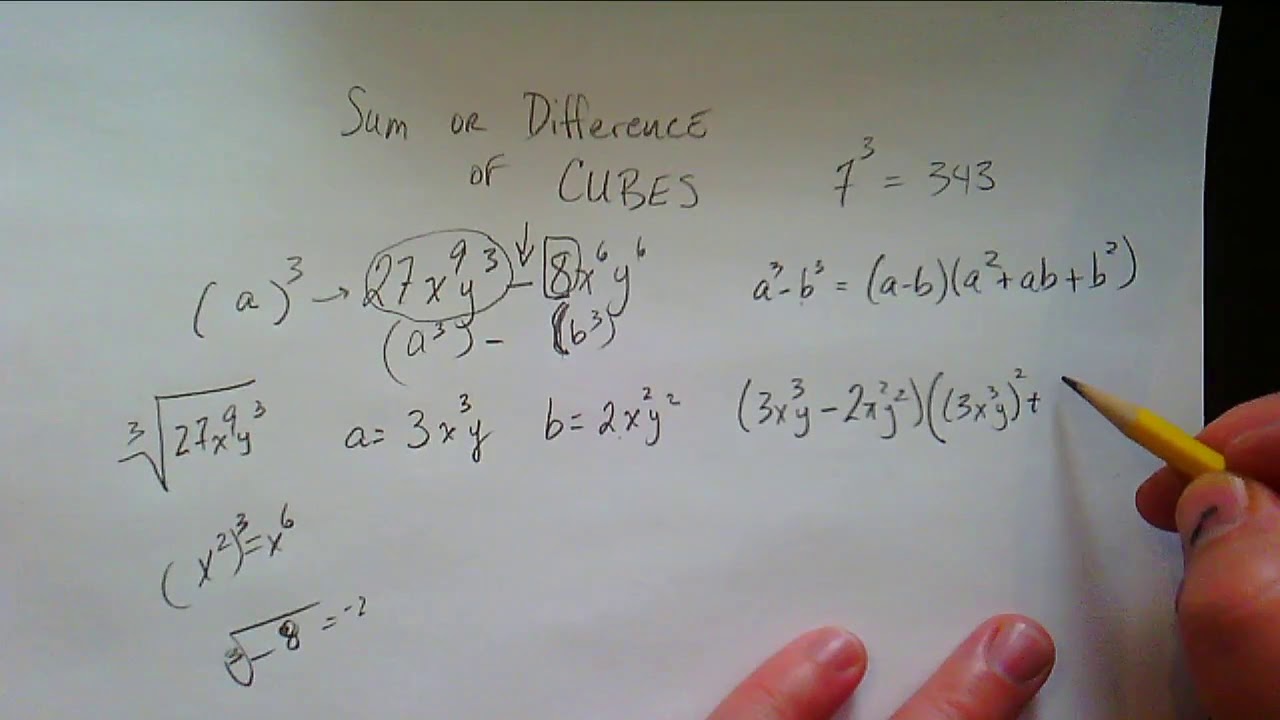 Sum OR Difference
OF CUBES
7³ = 343
(a)³ → 27x⁹y³ - 8x⁶y⁶
(a³) - (b³)
a³-b³ = (a-b)(a²+ab+b²)
∛27x⁹y³
a = 3x³y
b = 2x²y²
(3x³y - 2x²y²)((3x³y)² +
(x²)³ = x⁶
∛-8 = -2